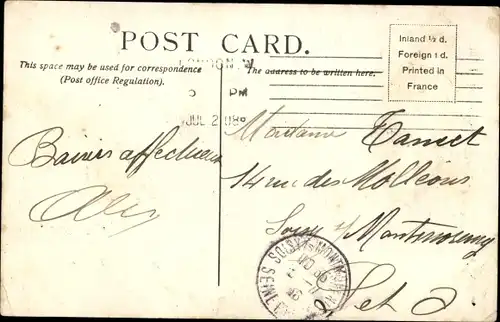 POST CARD.
This space may be used for correspondence
(Post office Regulation).
The address to be written here.
Inland ½ d.
Foreign 1 d.
Printed in
France
LONDON. W
PM
JUL 2 08
Baisers affectueux
Madame
14 rue des
Soisy s/ Montmorency
S et O